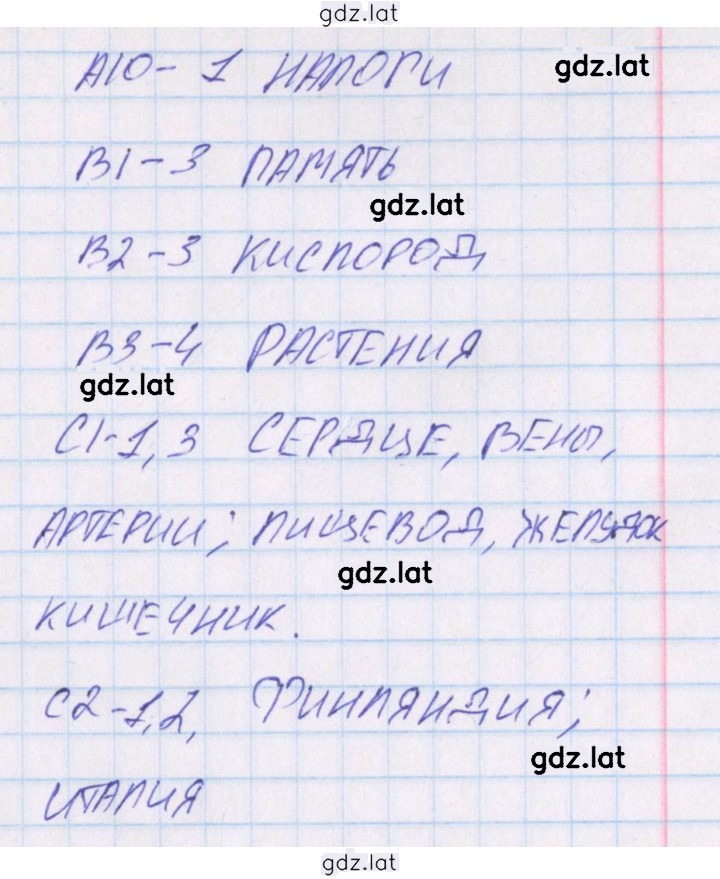 gdz.lat
А10- 1 НАЛОГИ
gdz.lat
В1-3 ПАМЯТЬ
gdz.lat
В2-3 КИСЛОРОД
В3-4 РАСТЕНИЯ
gdz.lat
С1-1,3 СЕРДЦЕ, ВЕНЫ,
АРТЕРИИ; ПИЩЕВОД, ЖЕЛУДОК
gdz.lat
КИШЕЧНИК.
С2-1,2, ФИНЛЯНДИЯ;
gdz.lat
ИТАЛИЯ
gdz.lat